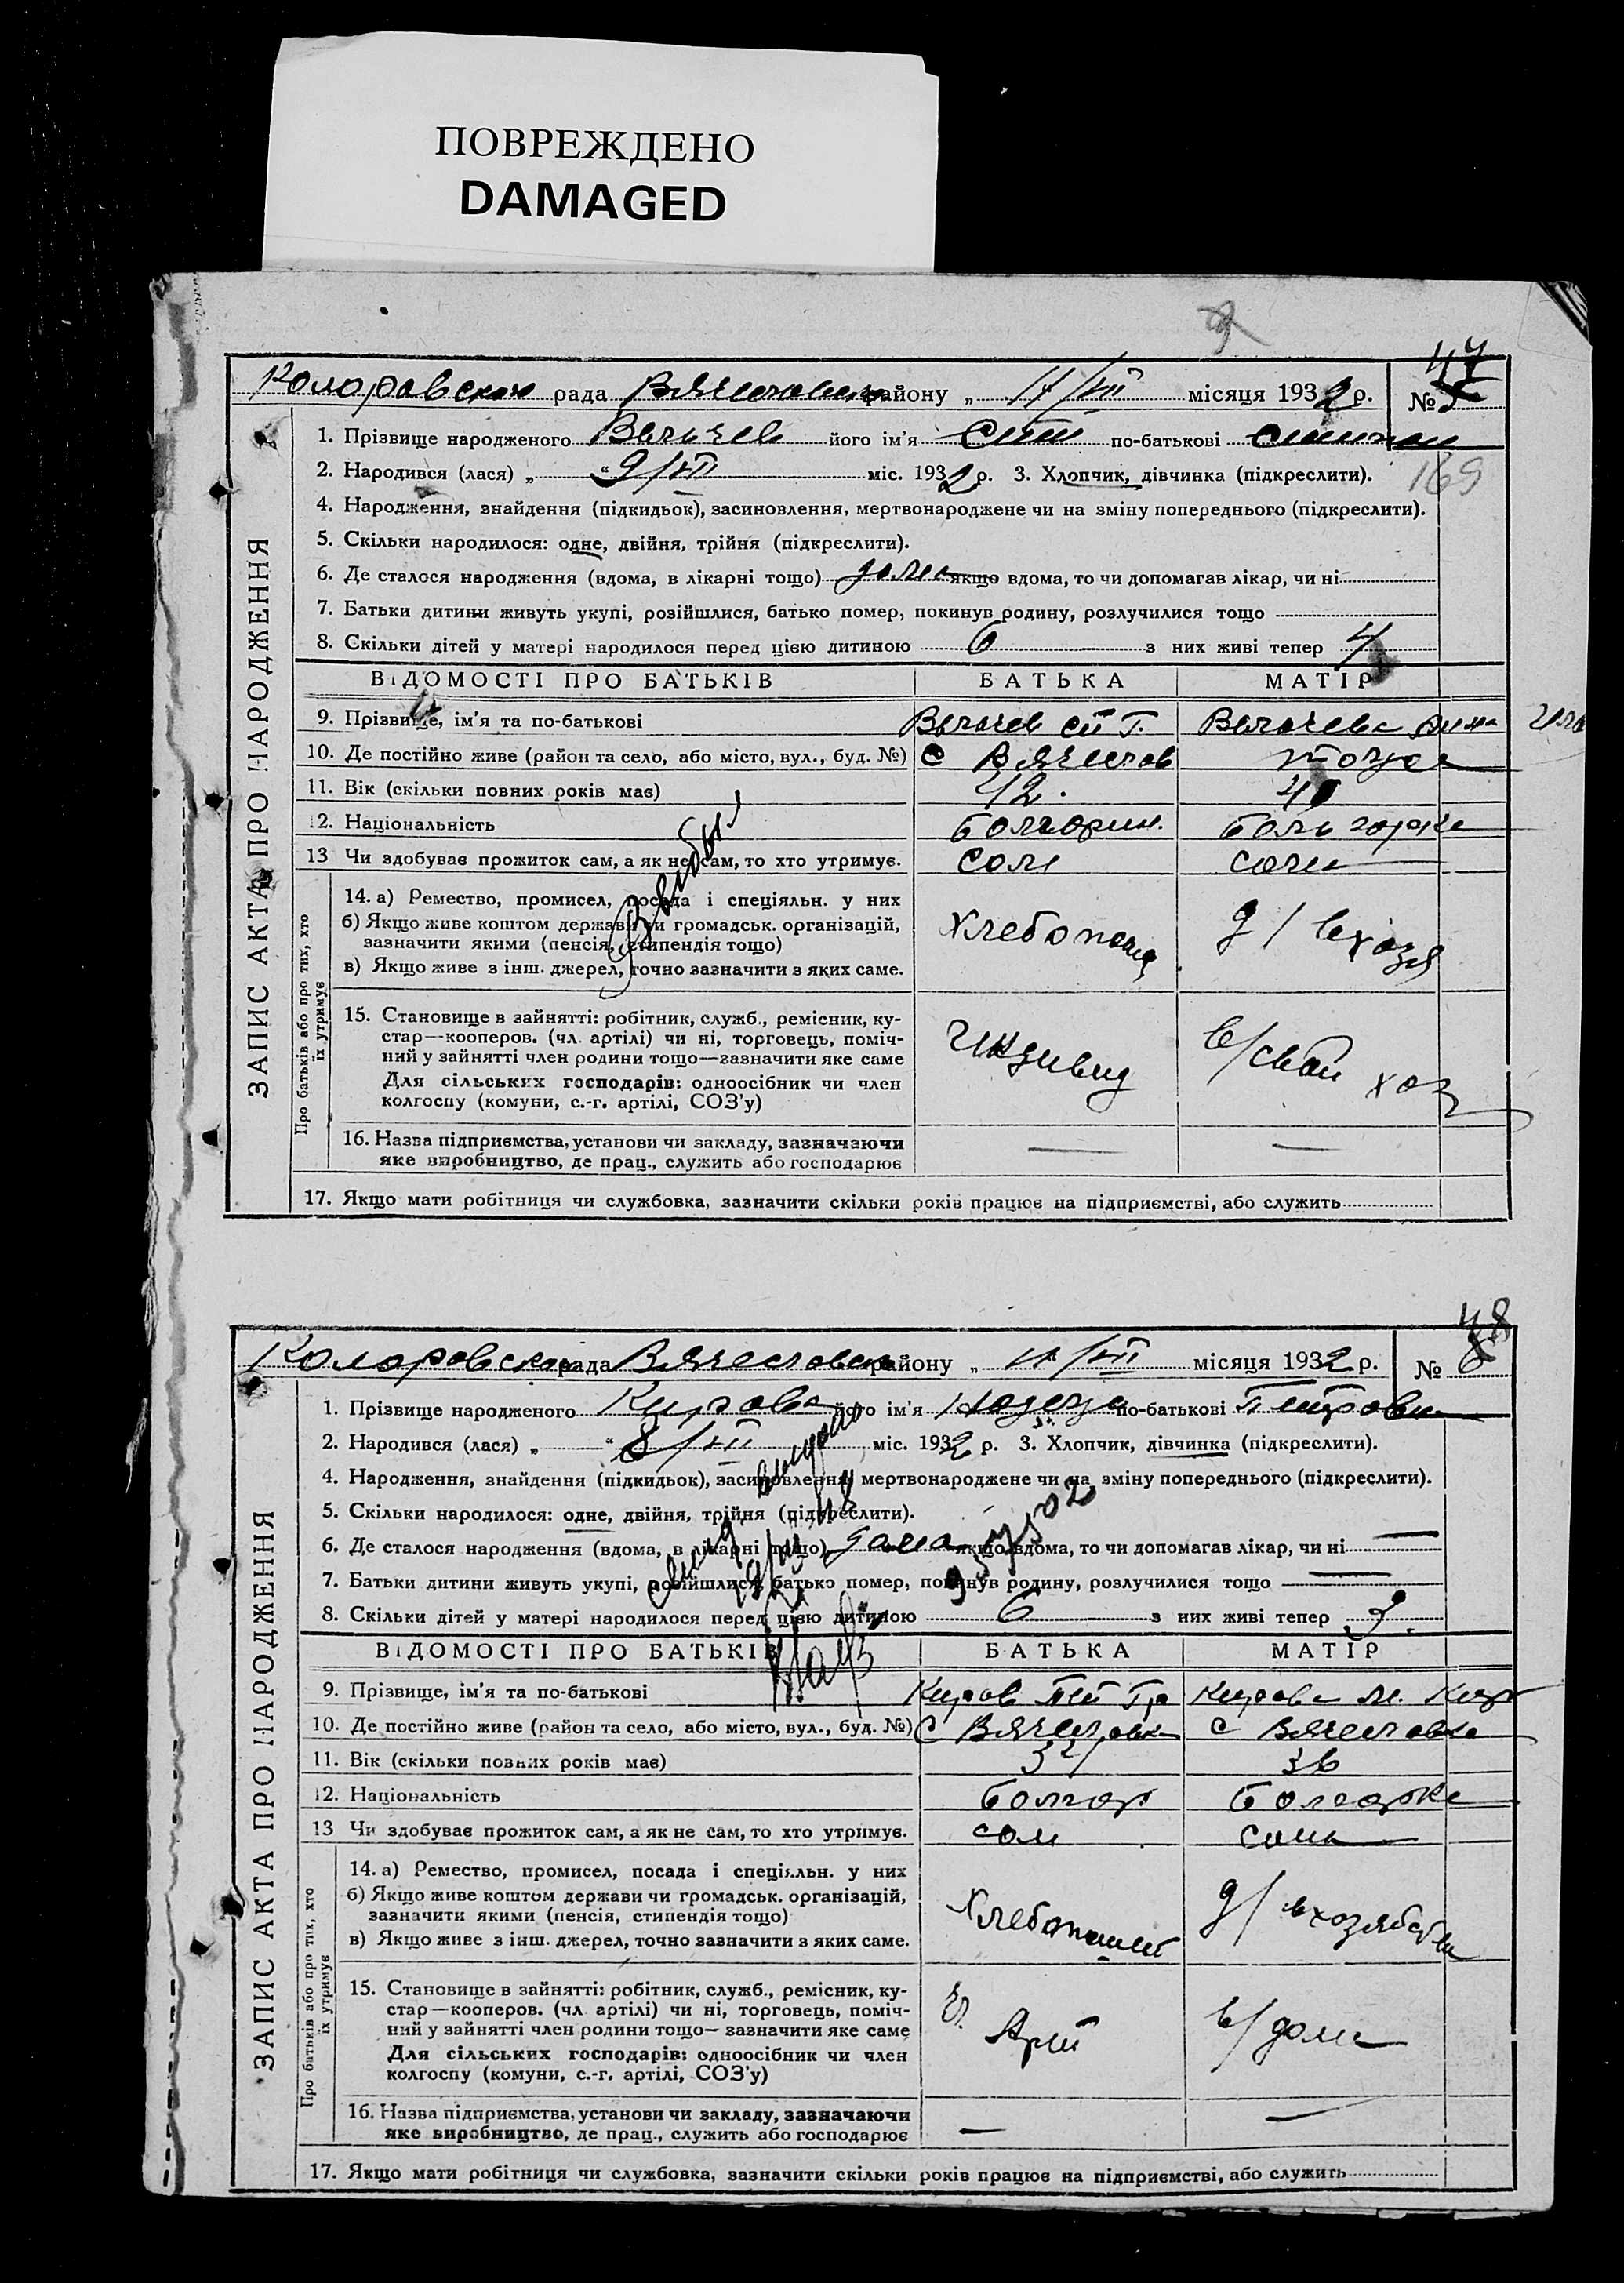 ПОВРЕЖДЕНО
DAMAGED
47
Коларовская рада района „ 11/VII місяця 1932 р. №
1. Прізвище народженого його ім'я по-батькові
2. Народився (лася) „ “ 9/VII міс. 1932 р. 3. Хлопчик, дівчинка (підкреслити).
169
4. Народження, знайдення (підкидьок), засиновлення, мертвонароджене чи на зміну попереднього (підкреслити).
5. Скільки народилося: одне, двійня, трійня (підкреслити).
6. Де сталося народження (вдома, в лікарні тощо) дома якщо вдома, то чи допомагав лікар, чи ні
7. Батьки дитини живуть укупі, розійшлися, батько помер, покинув родину, розлучилися тощо
8. Скільки дітей у матері народилося перед цією дитиною 6 з них живі тепер 4
ВІДОМОСТІ ПРО БАТЬКІВ БАТЬКА МАТІР
9. Прізвище, ім'я та по-батькові
10. Де постійно живе (район та село, або місто, вул., буд. №) с
11. Вік (скільки повних років має) 42
12. Національність Болгарин. Болгарка
13 Чи здобуває прожиток сам, а як не сам, то хто утримує. сам сама
ЗАПИС АКТА ПРО НАРОДЖЕННЯ
Про батьків або про тих, хто їх утримує
14. а) Ремество, промисел, посада і спеціяльн. у них
б) Якщо живе коштом держави чи громадськ. організацій,
зазначити якими (пенсія, стипендія тощо)
в) Якщо живе з інш. джерел, точно зазначити з яких саме.
Хлебопаш д/
15. Становище в зайнятті: робітник, служб., ремісник, ку-
стар—кооперов. (чл. артілі) чи ні, торговець, поміч-
ний у зайнятті член родини тощо—зазначити яке саме
Для сільських господарів: одноосібник чи член
колгоспу (комуни, с.-г. артілі, СОЗ'у)
Индивид в/свой хоз
16. Назва підприємства, установи чи закладу, зазначаючи
яке виробництво, де прац., служить або господарює
17. Якщо мати робітниця чи службовка, зазначити скільки років працює на підприємстві, або служить
48
Коларовская рада Вячеславск району „ 11/VII місяця 1932 р. № 6
1. Прізвище народженого Кирова його ім'я по-батькові Петровна
2. Народився (лася) „ “ 8/VII міс. 1932 р. 3. Хлопчик, дівчинка (підкреслити).
4. Народження, знайдення (підкидьок), засиновлення, мертвонароджене чи на зміну попереднього (підкреслити).
5. Скільки народилося: одне, двійня, трійня (підкреслити).
6. Де сталося народження (вдома, в лікарні тощо) дома якщо вдома, то чи допомагав лікар, чи ні —
7. Батьки дитини живуть укупі, розійшлися, батько помер, покинув родину, розлучилися тощо —
8. Скільки дітей у матері народилося перед цією дитиною 6 з них живі тепер
ВІДОМОСТІ ПРО БАТЬКІВ БАТЬКА МАТІР
9. Прізвище, ім'я та по-батькові Киров Пет Гр Кирова М.
10. Де постійно живе (район та село, або місто, вул., буд. №) с Вячеславка с Вячеславка
11. Вік (скільки повних років має) 36
12. Національність Болгар Болгарка
13 Чи здобуває прожиток сам, а як не сам, то хто утримує. сам сама
ЗАПИС АКТА ПРО НАРОДЖЕННЯ
Про батьків або про тих, хто їх утримує
14. а) Ремество, промисел, посада і спеціяльн. у них
б) Якщо живе коштом держави чи громадськ. організацій,
зазначити якими (пенсія, стипендія тощо)
в) Якщо живе з інш. джерел, точно зазначити з яких саме.
Хлебопашет д/
15. Становище в зайнятті: робітник, служб., ремісник, ку-
стар—кооперов. (чл. артілі) чи ні, торговець, поміч-
ний у зайнятті член родини тощо— зазначити яке саме
Для сільських господарів: одноосібник чи член
колгоспу (комуни, с.-г. артілі, СОЗ'у)
Арт в/дома
16. Назва підприємства, установи чи закладу, зазначаючи
яке виробництво, де прац., служить або господарює — —
17. Якщо мати робітниця чи службовка, зазначити скільки років працює на підприємстві, або служить